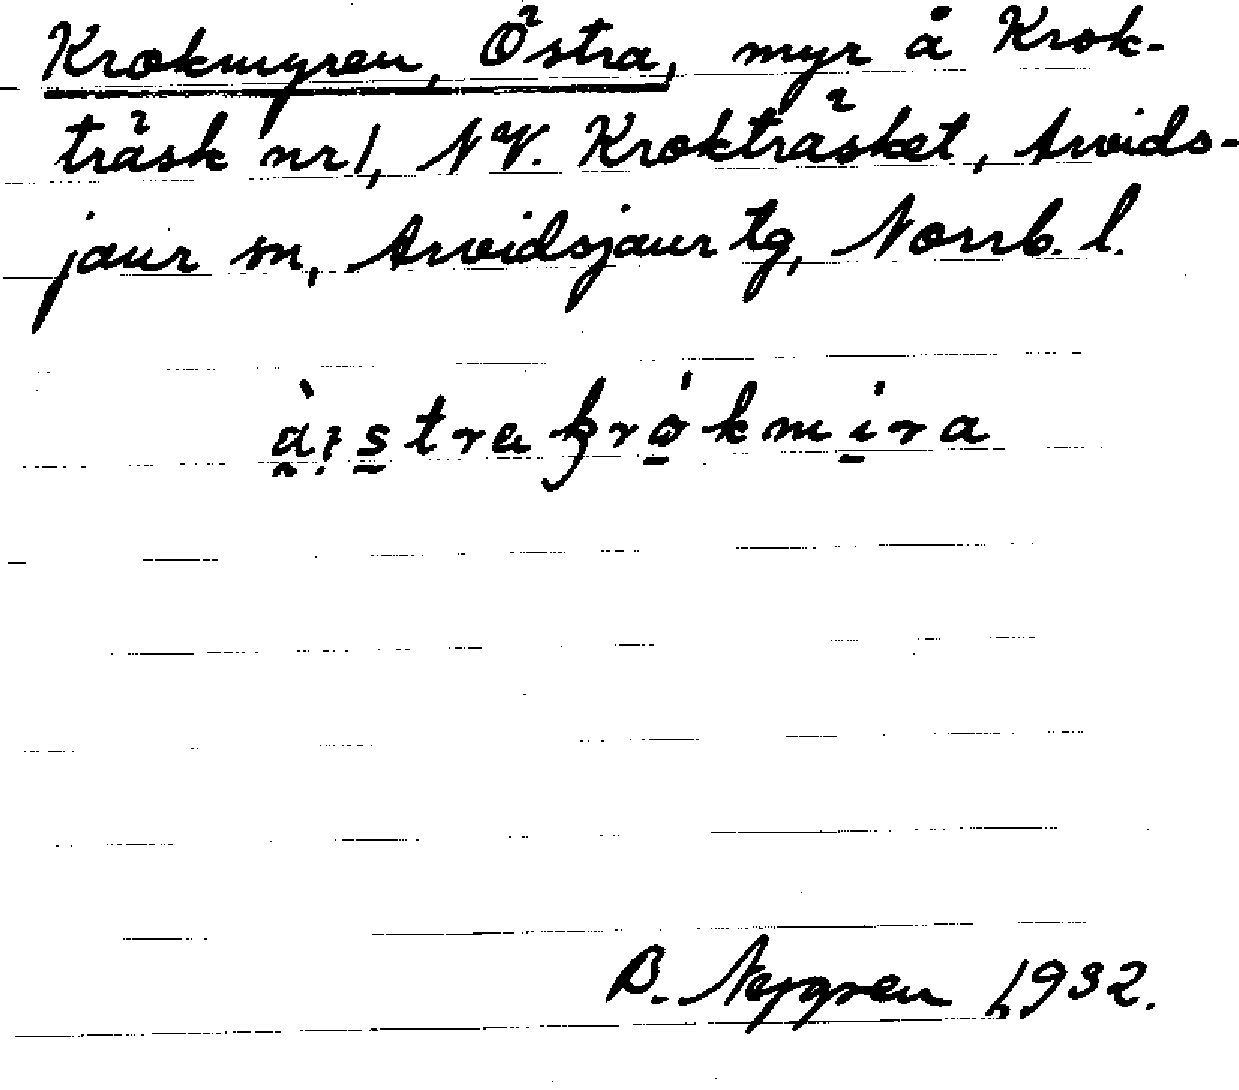 Krokmyren, Östra, myr å Krok-
träsk nr 1, NV. Krokträsket, Arvids-
jaur sn, Arvidsjaur tg, Norrb. l.
B. Nygren 1932.